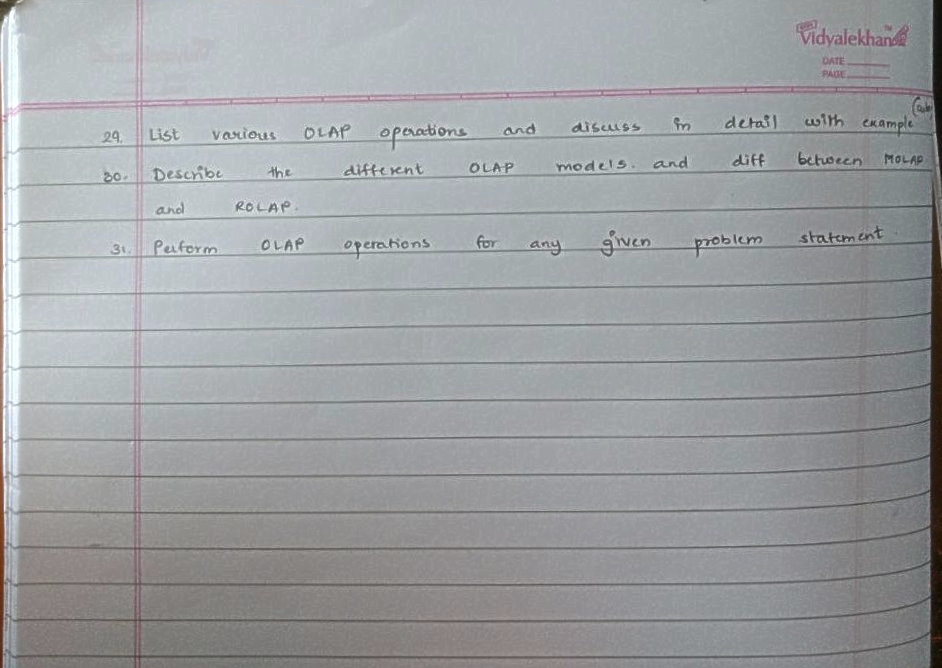 Vidyalekhan
DATE
PAGE
29. List various OLAP operations and discuss in detail with example
30. Describe the different OLAP models. and diff between MOLAP
and ROLAP.
31. Perform OLAP operations for any given problem statement.